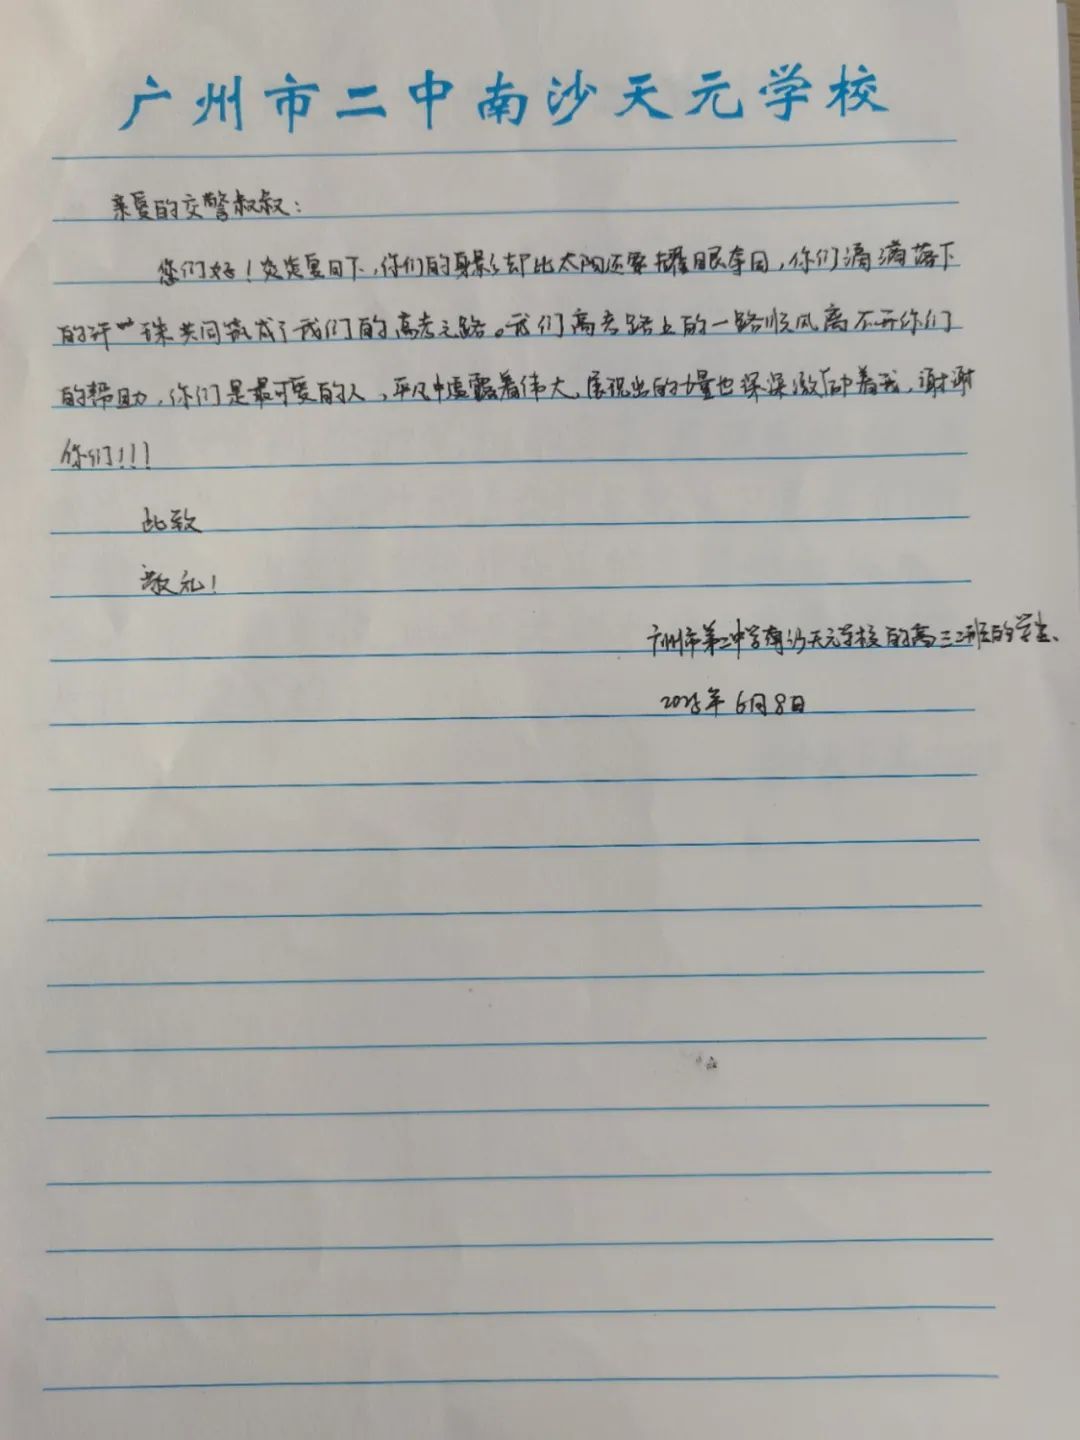 广州市二中南沙天元学校
亲爱的交警叔叔:
您们好!炎炎夏日下,你们的身影却比太阳还要耀眼夺目,你们滴滴落下
的汗珠共同筑成了我们的高考之路。我们高考路上的一路顺风离不开你们
的帮助,你们是最可爱的人,平凡中透露着伟大,展现出的力量也深深激励着我,谢谢
你们!!!
此致
敬礼!
广州市第二中学南沙天元学校的高三二班的学生、
2025年6月8日